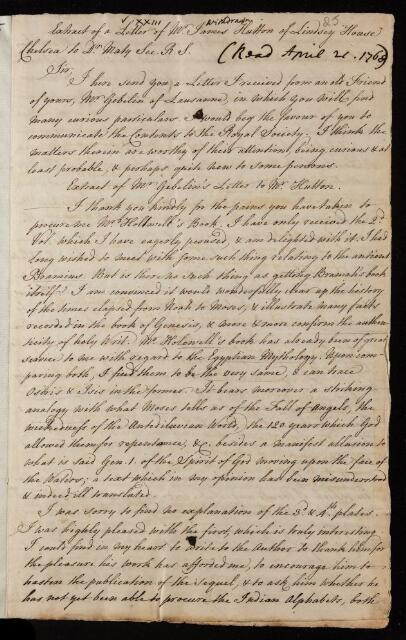 V XXIII Withdrawn 25
Extract of a Letter of Mr. James Hutton of Lindsey House
Chelsea to Dr. Maty Sec. R. S.
(Read April 21. 1768)
Sir,
I here send you a Letter I received from an old Friend
of yours, Mr. Gebelin of Lausanne, in which you will find
many curious particulars I would beg the favour of you to
communicate the Contents to the Royal Society. I think the
matters therein are worthy of their attention, being curious & at
least probable, & perhaps quite new to some persons.
Extract of Mr. Gebelin's Letter to Mr. Hutton.
I thank you kindly for the pains you have taken to
procure me Mr. Hollwell's Book. I have only received the 2d.
Vol. which I have eagerly perused, & am delighted with it. I had
long wished to meet with some such thing relating to the antient
Bramins But is there no such thing as getting Bramah's book
itself? I am convinced it would wonderfully clear up the history
of the times elapsed from Noah to Moses, & illustrate many facts
recorded in the book of Genesis, & more & more confirm the authen-
ticity of holy Writ. Mr. Holewell's book has already been of great
service to me with regard to the Egyptian Mythology. Upon com-
paring both, I find them to be the very same, & can trace
Osiris & Isis in the former. It bears moreover a striking
analogy with what Moses tells us of the Fall of Angels, the
wickedness of the Antediluvian World, the 120 years which God
allowed them for repentance, &c. besides a manifest allusion to
what is said Gen. 1. of the Spirit of God moving upon the face of
the Waters; a text which in my opinion has been misunderstood
& indeed ill translated.
I was sorry to find no explanation of the 3d. & 4th. plates.
I was highly pleased with the first, which is truly interesting
I could find in my heart to write to the Author to thank him for
the pleasure his work has afforded me, to encourage him to
hasten the publication of the sequel, & to ask him whether he
has not yet been able to procure the Indian Alphabets, both